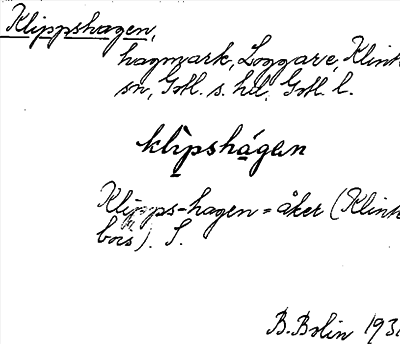 Klippshagen,
hagmark, Loggarve, Klinte
sn, Gotl. s. hd. Gotl. l.
klìpshágen
Klipps-hagen = åker (Klinte-
bois). S.
B. Bolin 193